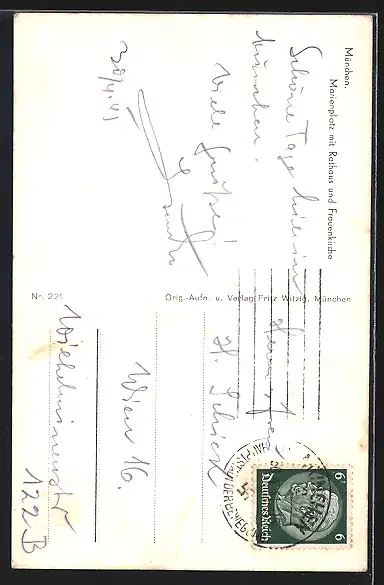 München.
Marienplatz mit Rathaus und Frauenkirche
Schöne Tage hier in
München.
Viele Grüße!
30/4.41
Nr. 221
Orig.-Aufn. u. Verlag Fritz Witzig, München
Herrn
H. Schiest
Wien 16.
Wilhelminenstr
122 B
6
Deutsches Reich
6